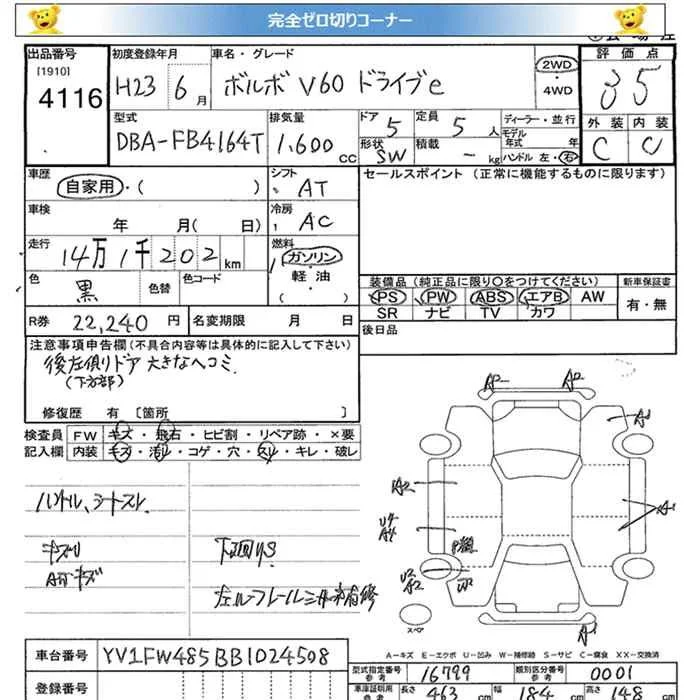 完全ゼロ切りコーナー
出品番号 初度登録年月 車名・グレード 評価点
[1910]
4116 H23 6月 ボルボ V60 ドライブe 2WD ・ 4WD 35
型式 排気量 ドア 定員 ディーラー・並行 外装 内装
DBA-FB4164T 1,600 cc 5 5人 モデル年式 年 C C
形状 SW 積載 - kg ハンドル 左・右
車歴 シフト セールスポイント (正常に機能するものに限ります)
自家用・( ) AT
車検 冷房
年 月( 日) AC
走行 燃料
14万1千202km ガソリン・軽油・( )
色 色替 色コード 装備品 (純正品に限り○をつけてください) 新車保証書
黒 PS PW ABS エアB AW 有・無
SR ナビ TV カワ
R券 22,240円 名変期限 月 日 後日品
注意事項申告欄(不具合内容等は具体的に記入して下さい)
後左側リドア 大きなヘコミ
(下方部)
修復歴 有 [箇所 ]
検査員 FW キズ・飛石・ヒビ割・リペア跡・×要
記入欄 内装 キズ・汚レ・コゲ・穴・スレ・キレ・破レ
ハンドル、シートスレ
下回りS
スペア
A-キズ E-エクボ U-凹み W-補修跡 S-サビ C-腐食 XX-交換済
車台番号 YV1FW485BB1024508
型式指定番号 参考 16799 類別区分番号 参考 0001
登録番号
車庫証明用 参考 長さ 463 cm 幅 184 cm 高さ 148 cm